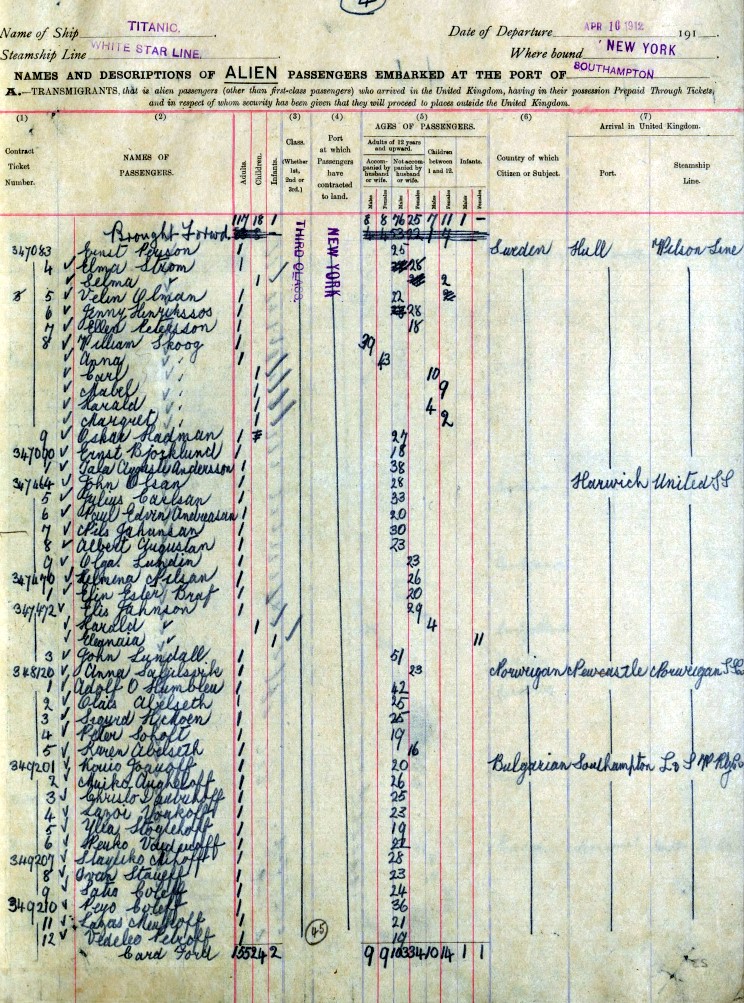 4
Name of Ship TITANIC. Date of Departure APR 10 1912 191
Steamship Line WHITE STAR LINE. Where bound NEW YORK
NAMES AND DESCRIPTIONS OF ALIEN PASSENGERS EMBARKED AT THE PORT OF SOUTHAMPTON
A.—TRANSMIGRANTS, that is alien passengers (other than first-class passengers) who arrived in the United Kingdom, having in their possession Prepaid Through Tickets,
and in respect of whom security has been given that they will proceed to places outside the United Kingdom.
(1) (2) (3) (4) (5) (6) (7)
Contract Ticket Number. NAMES OF PASSENGERS. Adults. Children. Infants. Class. (Whether 1st, 2nd or 3rd.) Port at which Passengers have contracted to land. AGES OF PASSENGERS. Country of which Citizen or Subject. Arrival in United Kingdom.
Adults of 12 years and upward. Children between 1 and 12. Infants. Port. Steamship Line.
Accompanied by husband or wife. Not accompanied by husband or wife.
Males Females Males Females Males Females Males Females
117 18 1 8 8 76 25 7 11 1 —
Brought Forwd
THIRD CLASS. NEW YORK
347083 Ernst Persson 1 25 Sweden Hull Wilson Line
4 Elma Strom 1 28
Selma " 1 2
5 Velin Olman 1 22
6 Jenny Henrikssos 1 28
7 Ellen Petersson 1 18
8 William Skoog 1 39
Anna " 1 43
Carl " 1 10
Mabel " 1 9
Harald " 1 4
Margret " 1 2
9 Oskar Hadman 1 27
Ernst Bjorklund 1 18
1 Ida Auguste Andersson 1 38
347464 John Olsan 1 28 Harwich United SS
5 Julius Carlsan 1 33
6 Paul Edvin Andreasan 1 20
7 Nils Johansan 1 30
8 Albert Gugustan 1 23
9 Olga Lundin 1 23
347470 Helmina Nilsan 1 26
1 Elin Ester Braf 1 20
347472 Elis Johnson 1 29
Harald " 1 4
Eleanaia " 1 11
3 John Lundall 1 51
348120 Anna 1 23 Norwigan Newcastle Norwigan SS Co
1 Adolf O Humblen 1 42
2 Olais Abelseth 1 25
3 Sigurd 1 25
4 Peter Soholt 1 19
5 Karen Abelseth 1 16
349201 1 20 Bulgarian Southampton L & S W Rly Co
2 1 26
3 Christo 1 25
4 1 23
5 Ylia 1 19
6 Penko 1 22
349207 1 28
8 Ivan Staneff 1 23
9 Satio Coleff 1 24
349210 Peyo Coleff 1 36
11 1 21
12 Petroff 1 19
45
Card Ford 155 24 2 9 9 103 34 10 14 1 1